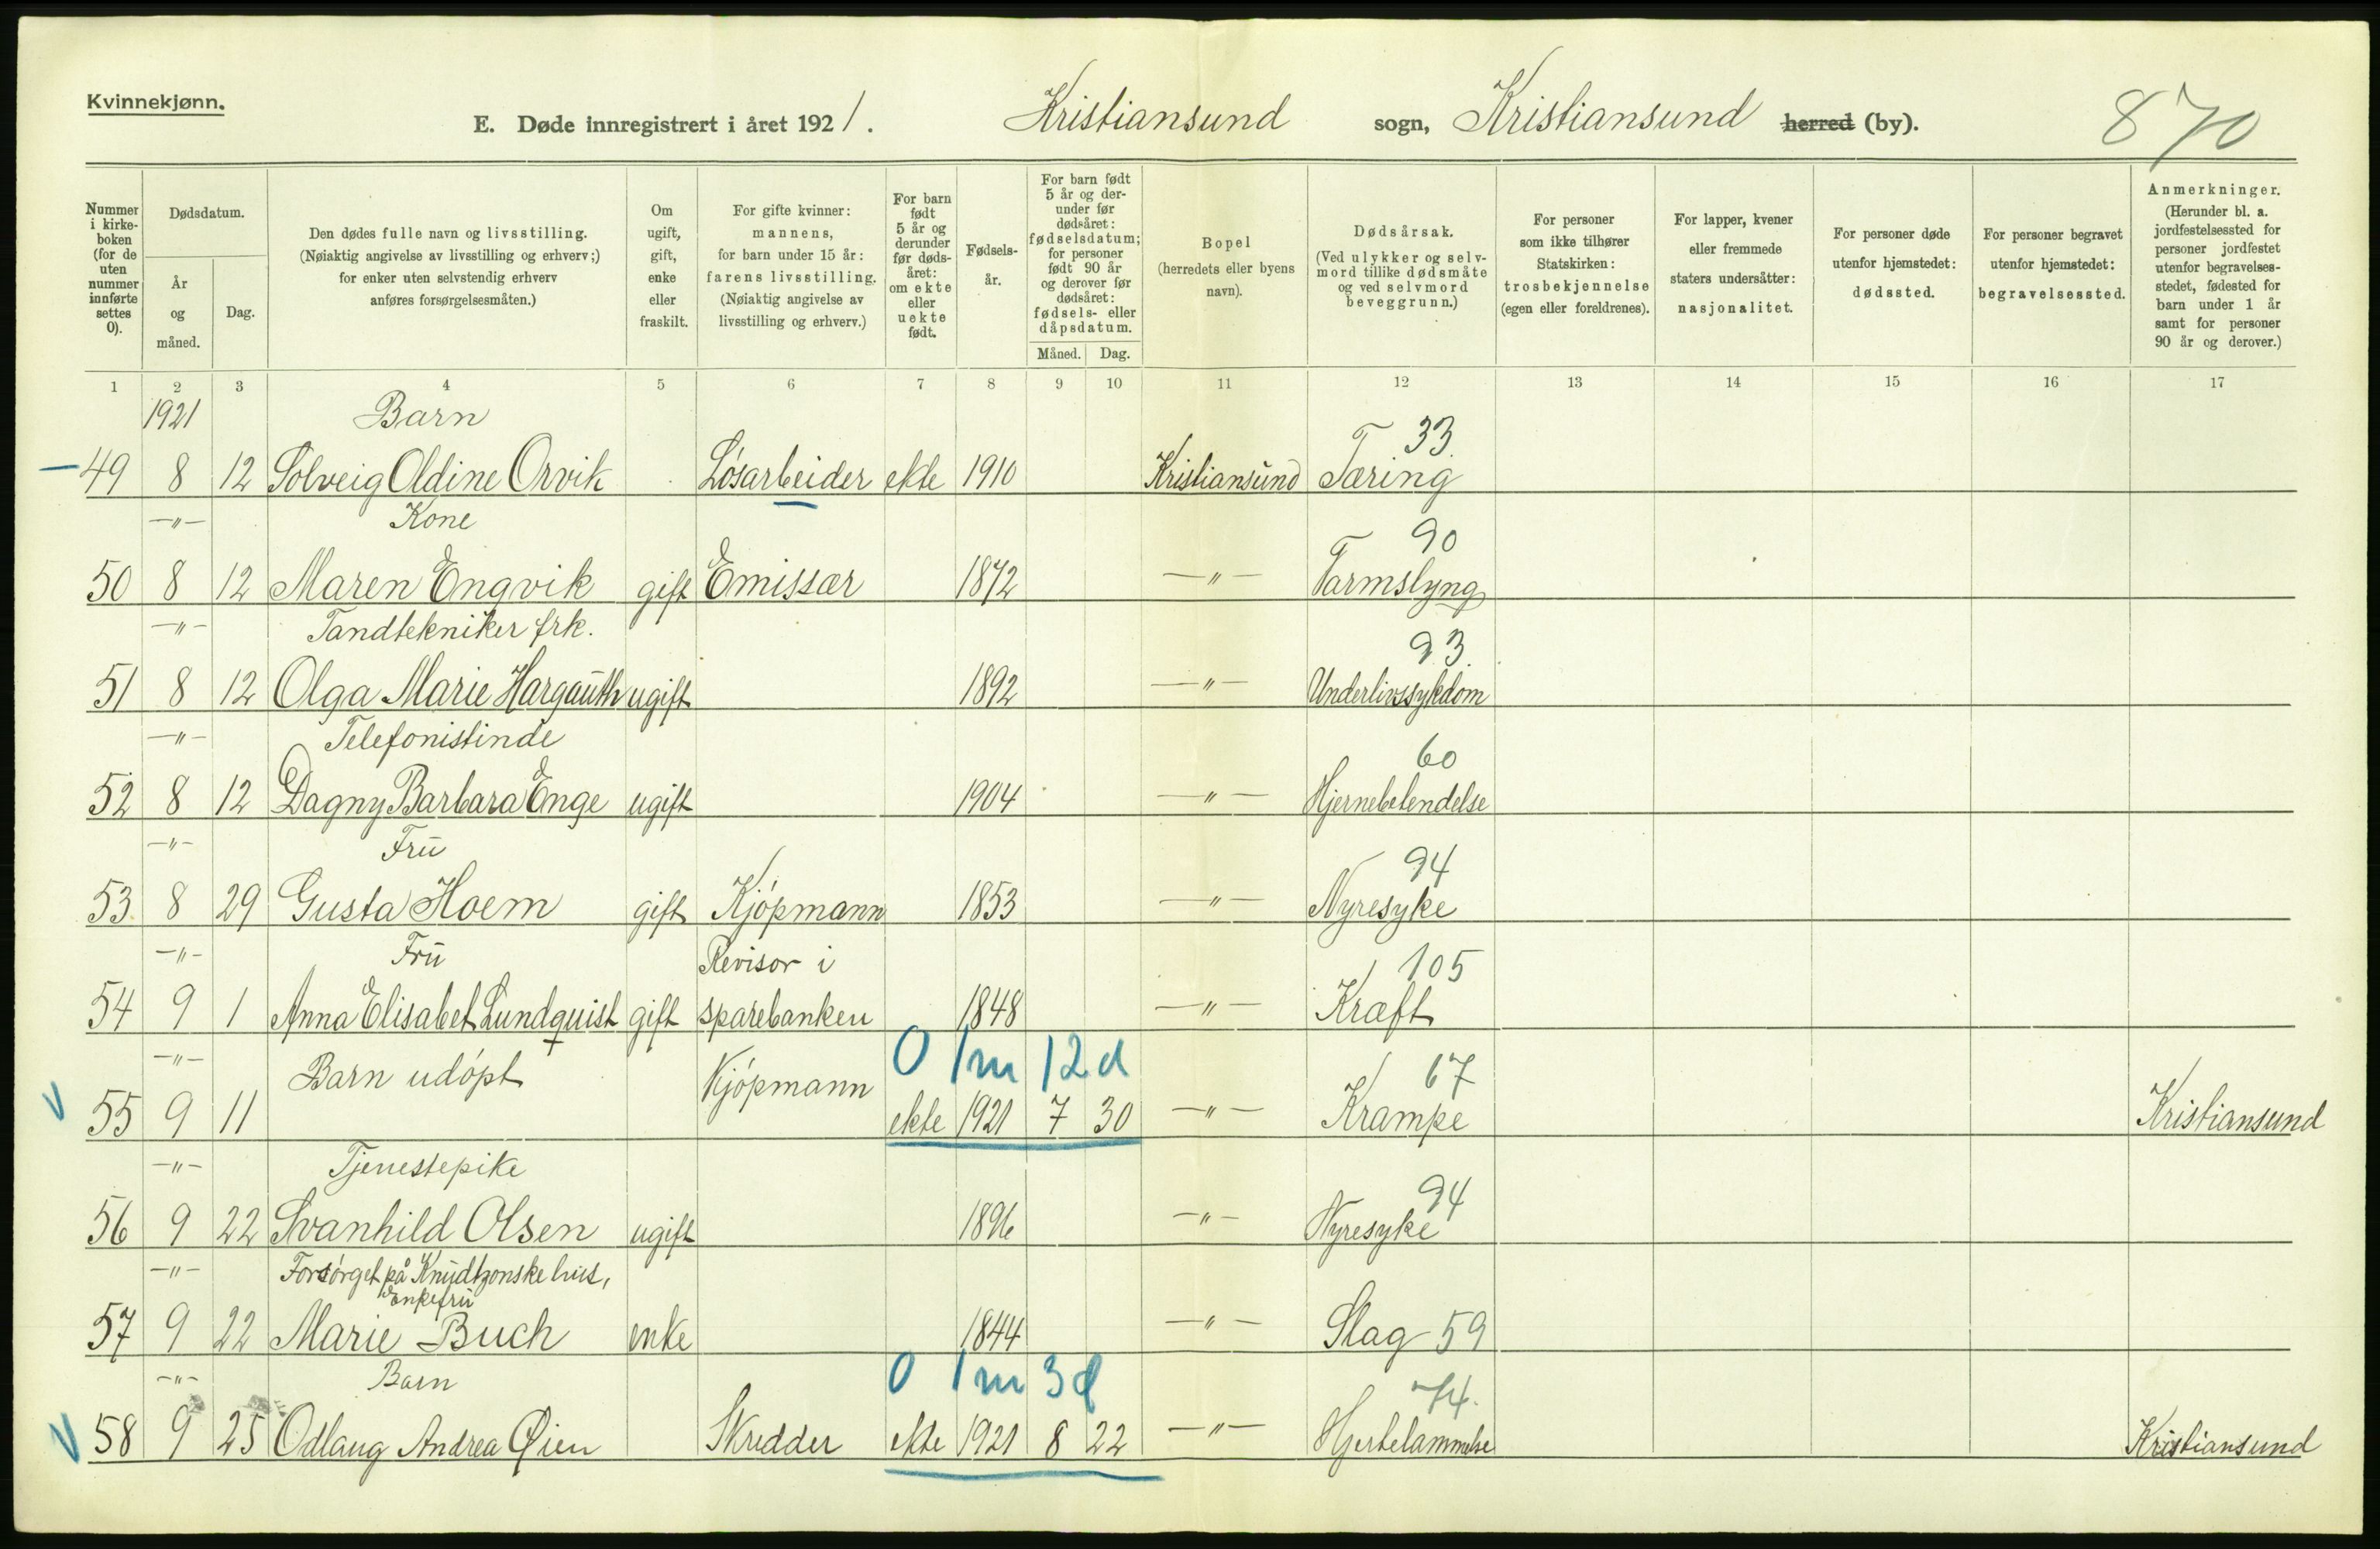 Kvinnekjønn.
E. Døde innregistrert i året 1921. Kristiansund sogn, Kristiansund herred (by). 870
Nummer i kirkeboken (for de uten nummer innførte settes 0).
Dødsdatum.
År og måned.
Dag.
Den dødes fulle navn og livsstilling. (Nøiaktig angivelse av livsstilling og erhverv;) for enker uten selvstendig erhverv anføres forsørgelsesmåten.)
Om ugift, gift, enke eller fraskilt.
For gifte kvinner: mannens, for barn under 15 år: farens livsstilling. (Nøiaktig angivelse av livsstilling og erhverv.)
For barn født 5 år og derunder før dødsåret: om ekte eller uekte født.
Fødselsår.
For barn født 5 år og derunder før dødsåret: fødselsdatum; for personer født 90 år og derover før dødsåret: fødsels- eller dåpsdatum.
Måned. Dag.
Bopel (herredets eller byens navn).
Dødsårsak. (Ved ulykker og selvmord tillike dødsmåte og ved selvmord beveggrunn.)
For personer som ikke tilhører Statskirken: trosbekjennelse (egen eller foreldrenes).
For lapper, kvener eller fremmede staters undersåtter: nasjonalitet.
For personer døde utenfor hjemstedet: dødssted.
For personer begravet utenfor hjemstedet: begravelsessted.
Anmerkninger. (Herunder bl. a. jordfestelsessted for personer jordfestet utenfor begravelsesstedet, fødested for barn under 1 år samt for personer 90 år og derover.)
1 2 3 4 5 6 7 8 9 10 11 12 13 14 15 16 17
1921 Barn T 33.
49 8 12 Solveig Oldine Orvik Løsarbeider ekte 1910 Kristiansund Tæring
—"— Kone 90
50 8 12 Maren Engvik gift Emissær 1872 —"— Tarmslyng
—"— Tandtekniker frk. 93.
51 8 12 Olga Marie Hargauth ugift 1892 —"— Underlivssykdom
—"— Telefonistinde 60
52 8 12 Dagny Barbara Enge ugift 1904 —"— Hjernebetendelse
—"— Fru 94
53 8 29 Gusta Hoem gift Kjøpmann 1853 —"— Nyresyke
—"— Fru Revisor i 105
54 9 1 Anna Elisabet Lundquist gift sparebanken 1848 —"— Kræft
—"— Barn udøpt Kjøpmann 0 1m 12d 67
55 9 11 ekte 1921 7 30 —"— Krampe Kristiansund
—"— Tjenestepike 94
56 9 22 Svanhild Olsen ugift 1896 —"— Nyresyke
—"— Forsørget på Knudtzonske hus,
enkefru
57 9 22 Marie Buch enke 1844 —"— Slag 59
—"— Barn 0 1m 3d 74.
58 9 25 Odlaug Andrea Øien Skredder ekte 1921 8 22 —"— Hjertelammelse Kristiansund